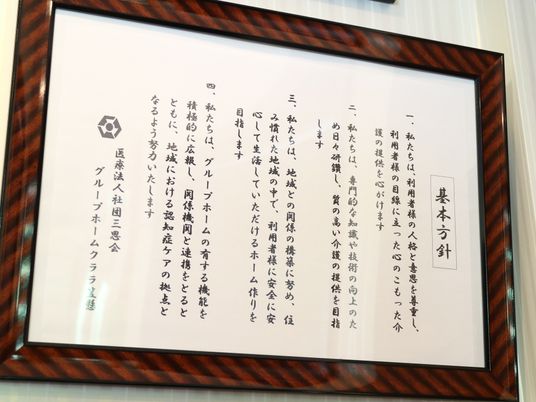 基本方針
一、私たちは、利用者様の人格と意思を尊重し、
利用者様の目線に立った心のこもった介
護の提供を心がけます
二、私たちは、専門的な知識や技術の向上のた
め日々研鑽し、質の高い介護の提供を目指
します
三、私たちは、地域との関係の構築に努め、住
み慣れた地域の中で、利用者様に安全に安
心して生活していただけるホーム作りを
目指します
四、私たちは、グループホームの有する機能を
積極的に広報し、関係機関と連携をとると
ともに、地域における認知症ケアの拠点と
なるよう努力いたします
医療法人社団三思会
グループホームクララ